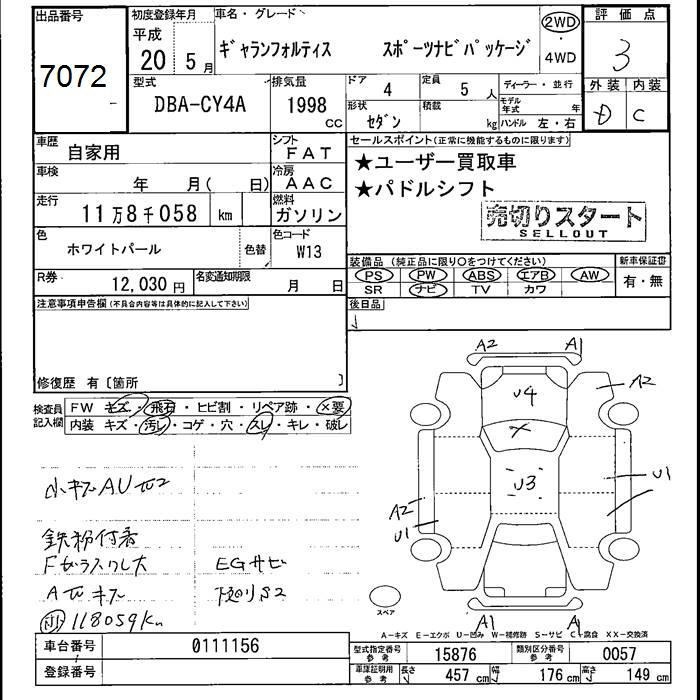 出品番号 初度登録年月 車名・グレード 評価点
7072
平成 20 5月 ギャランフォルティス スポーツナビパッケージ 2WD・4WD 3
型式 排気量 ドア 4 定員 5人 ディーラー・並行 外装 内装
DBA-CY4A 1998cc 形状 セダン 積載 kg モデル年式 年 ハンドル 左・右 D C
車歴 自家用 シフト FAT セールスポイント(正常に機能するものに限ります)
車検 年 月( 日) 冷房 AAC ★ユーザー買取車
走行 11万8千058 km 燃料 ガソリン ★パドルシフト
売切りスタート
SELLOUT
色 ホワイトパール 色替 色コード W13
装備品(純正品に限り○をつけてください) 新車保証書
PS PW ABS エアB AW 有・無
R券 12,030円 名変通知期限 月 日 SR ナビ TV カワ
注意事項申告欄(不具合内容等は具体的に記入して下さい) 後日品
修復歴 有〔箇所 〕
検査員記入欄 FW キズ・飛石・ヒビ割・リペア跡・×要
内装 キズ・汚レ・コゲ・穴・スレ・キレ・破レ
A2 A1
U4 A2
X
U3 U1
A2
U1
A1 A1
スペア
小キズAU
鉄粉付着
Fガラス EGサビ
A キズ 下廻りS2
118059Km
A−キズ E−エクボ U−凹み W−補修跡 S−サビ C−腐食 XX−交換済
車台番号 0111156 型式指定番号 参考 15876 類別区分番号 参考 0057
登録番号 車庫証明用 参考 長さ 457cm 幅 176cm 高さ 149cm